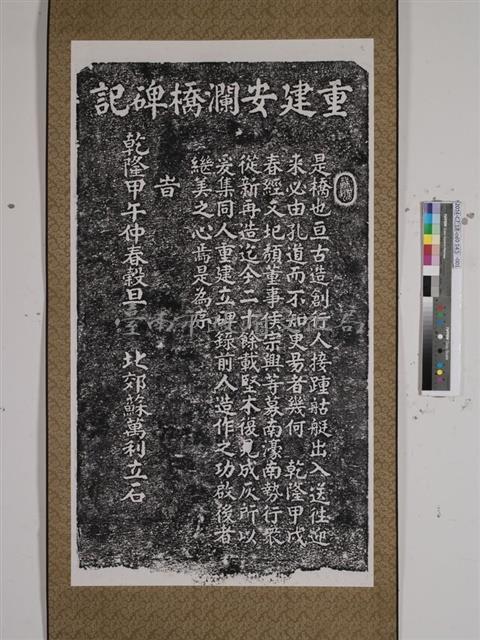 重建安瀾橋碑記
是橋也亘古造創行人接踵舡艇出入送往迎
來必由孔道而不知更易者幾何 乾隆甲戌
春經又圮頹董事侯宗興等募南濠南勢行眾
從新再造迄今二十餘載堅木復見成灰所以
爰集同人重建立碑錄前人造作之功啟後者
繼美之心焉是為序
旹
乾隆甲午仲春穀旦 北郊蘇萬利立石